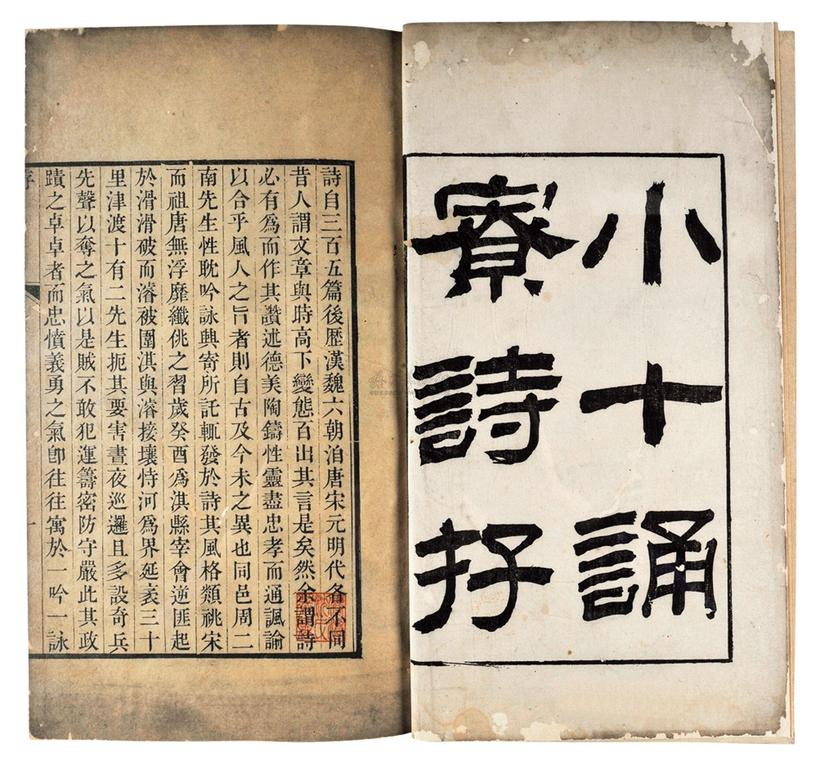 小十誦
寮詩存
詩自三百五篇後歷漢魏六朝洎唐宋元明代各不同
昔人謂文章與時高下變態百出其言是矣然余謂詩
必有為而作其讚述德美陶鑄性靈盡忠孝而通諷諭
以合乎風人之旨者則自古及今未之異也同邑周二
南先生性耽吟詠興寄所託輒發於詩其風格類祧宋
而祖唐無浮靡纖佻之習歲癸酉為淇縣宰會逆匪起
於滑滑破而濬被圍淇與濬接壤恃河為界延袤三十
里津渡十有二先生扼其要害晝夜巡邏且多設奇兵
先聲以奪之氣以是賊不敢犯運籌密防守嚴此其政
蹟之卓卓者而忠憤義勇之氣卽往往寓於一吟一詠
序
一